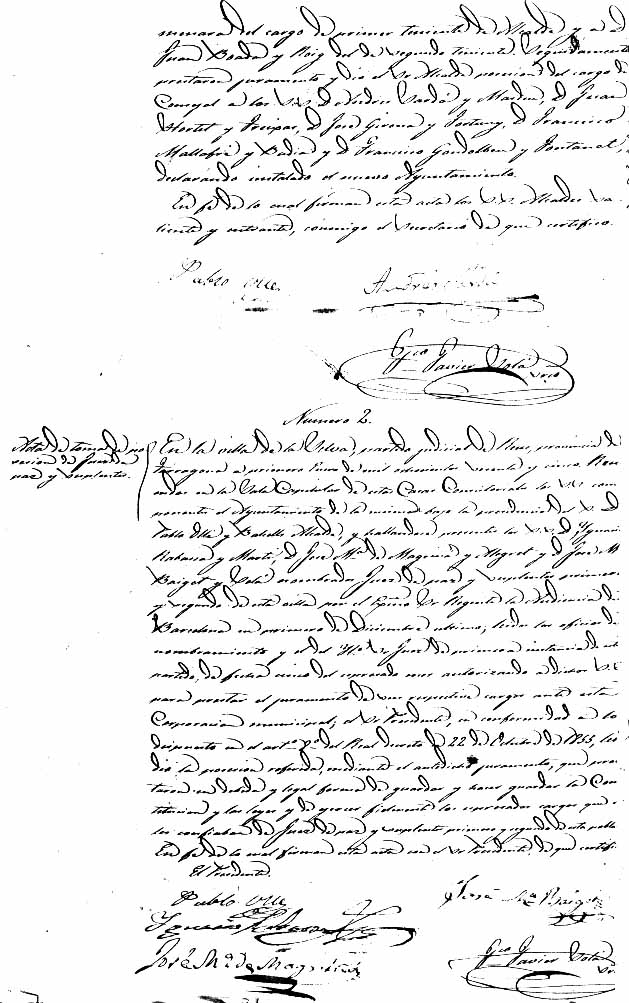 menara del cargo de primer teniente de Alcalde y a d
Juan Boada y Roig del de segundo teniente. Seguidamente
prestaron juramento y dio el Sr Alcalde posesion del cargo de
Concejal a los S.S. D. Isidro Sardá y Martín, D. Juan
Hortet y D. José Girona y Fortuny, D. Francisco
Mallofré y Badia y D. Francisco y Fontanet,
declarando instalado el nuevo Ayuntamiento.
En fé de lo cual firman esta acta los S.S. Alcaldes sa-
liente y entrante, conmigo el Secretario de que certifico.
Pablo Olle
Fco Jo
Javier Solá
Srio
Numero 2.
Acta de toma de po
sesion de Juez de
paz y suplentes.
En la villa de la Selva, partido judicial de Reus, provincia de
Tarragona a primero Enero de mil ochocientos sesenta y cinco. Reu
nidos en la Sala Capitular de estas Casas Consistoriales los S.S. com
ponente el Ayuntamiento de la misma bajo la presidencia del S. D.
Pablo Ollé y Alcalde, y hallandose presentes los S.S. D. Ignacio
Rabassa y Martí, D. José Mª de Magriñá y D. José M
Baiget y Solé nombrados Juez de paz y suplentes primero
y segundo de esta villa por el Excmo Sr Regente la Audiencia de
Barcelona en primero de Diciembre ultimo, leidos los oficios de
nombramiento y el del Sr Juez de primera instancia de este
partido, de fecha cinco del espresado mes autorizando a dichos S.S.
para prestar el juramento de sus respectivos cargos ante esta
Corporacion municipal; el Sr Presidente, en conformidad a lo
dispuesto en el artº 7º del Real decreto de 22 de Octubre de 1855, les
dio la posesion referida, mediante el antedicho juramento, que pres
taron en debida y legal forma de guardar y hacer guardar la Con
titucion y las leyes y de ejercer fielmente los espresados cargos que se
les confiaban de Juez de paz y suplente primero y segundo de esta villa.
En fé de lo cual firman esta acta con el Sr Presidente, de que certifi
El Presidente.
Pablo Olle
José Mª Baiget
José Mª de Magriñá
Fco Jo
Javier Solá
Srio